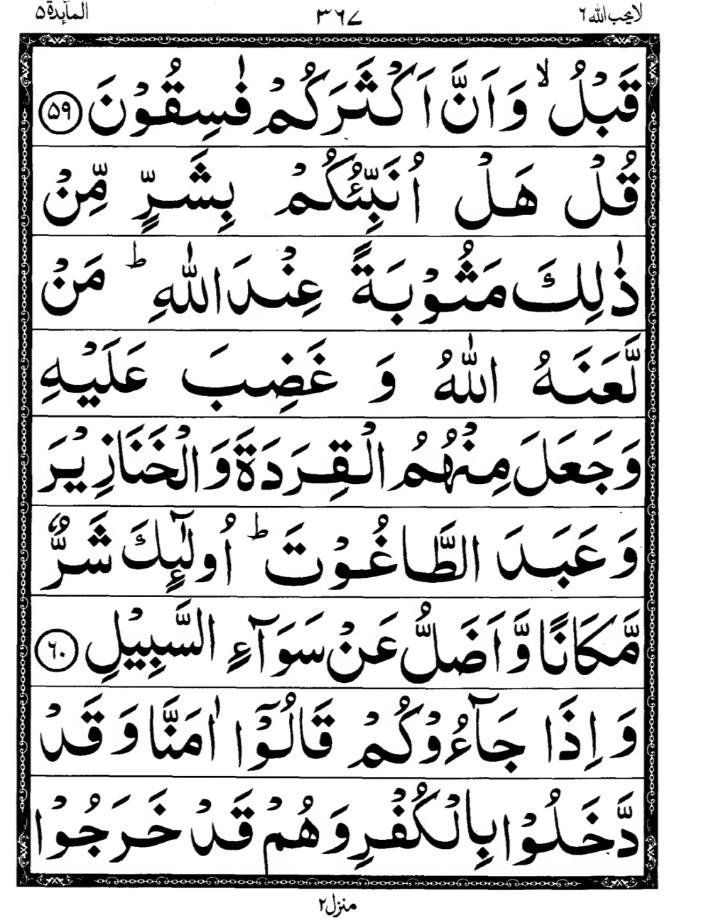 لا یحب اللہ ۶ ۳۶۷ المآئدۃ ۵
قَبْلُ ۙ وَاَنَّ اَكْثَرَكُمْ فٰسِقُوْنَ ﴿۵۹﴾
قُلْ هَلْ اُنَبِّئُكُمْ بِشَرٍّ مِّنْ
ذٰلِكَ مَثُوْبَةً عِنْدَ اللّٰهِ ؕ مَنْ
لَّعَنَهُ اللّٰهُ وَ غَضِبَ عَلَيْهِ
وَجَعَلَ مِنْهُمُ الْقِرَدَةَ وَالْخَنَازِيْرَ
وَعَبَدَ الطَّاغُوْتَ ؕ اُولٰٓئِكَ شَرٌّ
مَّكَانًا وَّاَضَلُّ عَنْ سَوَآءِ السَّبِيْلِ ﴿۶۰﴾
وَاِذَا جَآءُوْكُمْ قَالُوْٓا اٰمَنَّا وَقَدْ
دَّخَلُوْا بِالْكُفْرِ وَهُمْ قَدْ خَرَجُوْا
منزل ۲